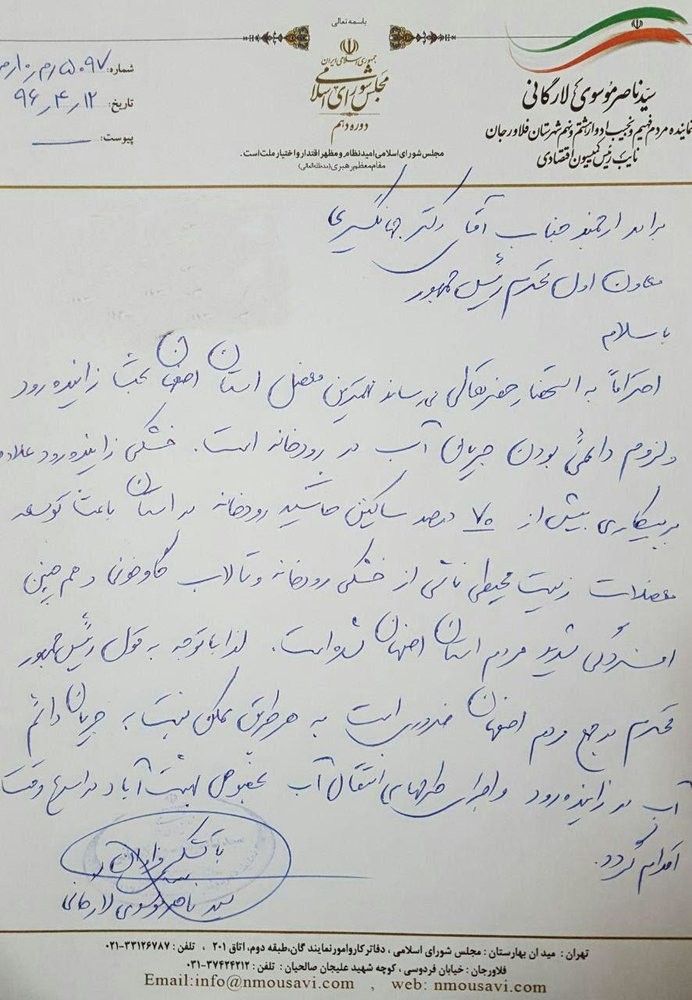 باسمه تعالی
جمهوری اسلامی ایران
مجلس شورای اسلامی
دوره دهم
مجلس شورای اسلامی امید نظام و مظهر اقتدار و اختیار ملت است.
مقام معظم رهبری (مدظله‌العالی)
سیّد ناصر موسوی لارگانی
نماینده مردم فهیم و نجیب ادوار هشتم و نهم شهرستان فلاورجان
نایب رئیس کمیسیون اقتصادی
شماره:
تاریخ: ۹۶٫۴٫۱۲
پیوست: ــ
برادر ارجمند جناب آقای دکتر جهانگیری
معاون اول محترم رئیس جمهور
با سلام
احتراماً به استحضار حضرتعالی می‌رساند مهمترین معضل استان اصفهان بحث زاینده رود
و لزوم دائمی بودن جریان آب در رودخانه است. خشکی زاینده رود علاوه
بر بیکاری بیش از ۷۰ درصد ساکنین حاشیه رودخانه در استان باعث توسعه
معضلات زیست محیطی ناشی از خشکی رودخانه و تالاب گاوخونی و هم چنین
افسردگی شدید مردم استان اصفهان شده است. لذا با توجه به قول رئیس جمهور
محترم در جمع مردم اصفهان ضروری است به هر طریق ممکن نسبت به جریان دائم
آب در زاینده رود و اجرای طرحهای انتقال آب بخصوص بهشت آباد در اسرع وقت
اقدام گردد.
با تشکر فراوان
سید ناصر موسوی لارگانی
تهران: میدان بهارستان: مجلس شورای اسلامی، دفاتر کار و امور نمایندگان، طبقه دوم، اتاق ۲۰۱ ، تلفن: ۳۳۱۲۶۷۸۷-۰۲۱
فلاورجان: خیابان فردوسی، کوچه شهید علیجان صالحیان: تلفن: ۳۷۴۲۴۲۱۲-۰۳۱
Email:info@nmousavi.com , web: nmousavi.com